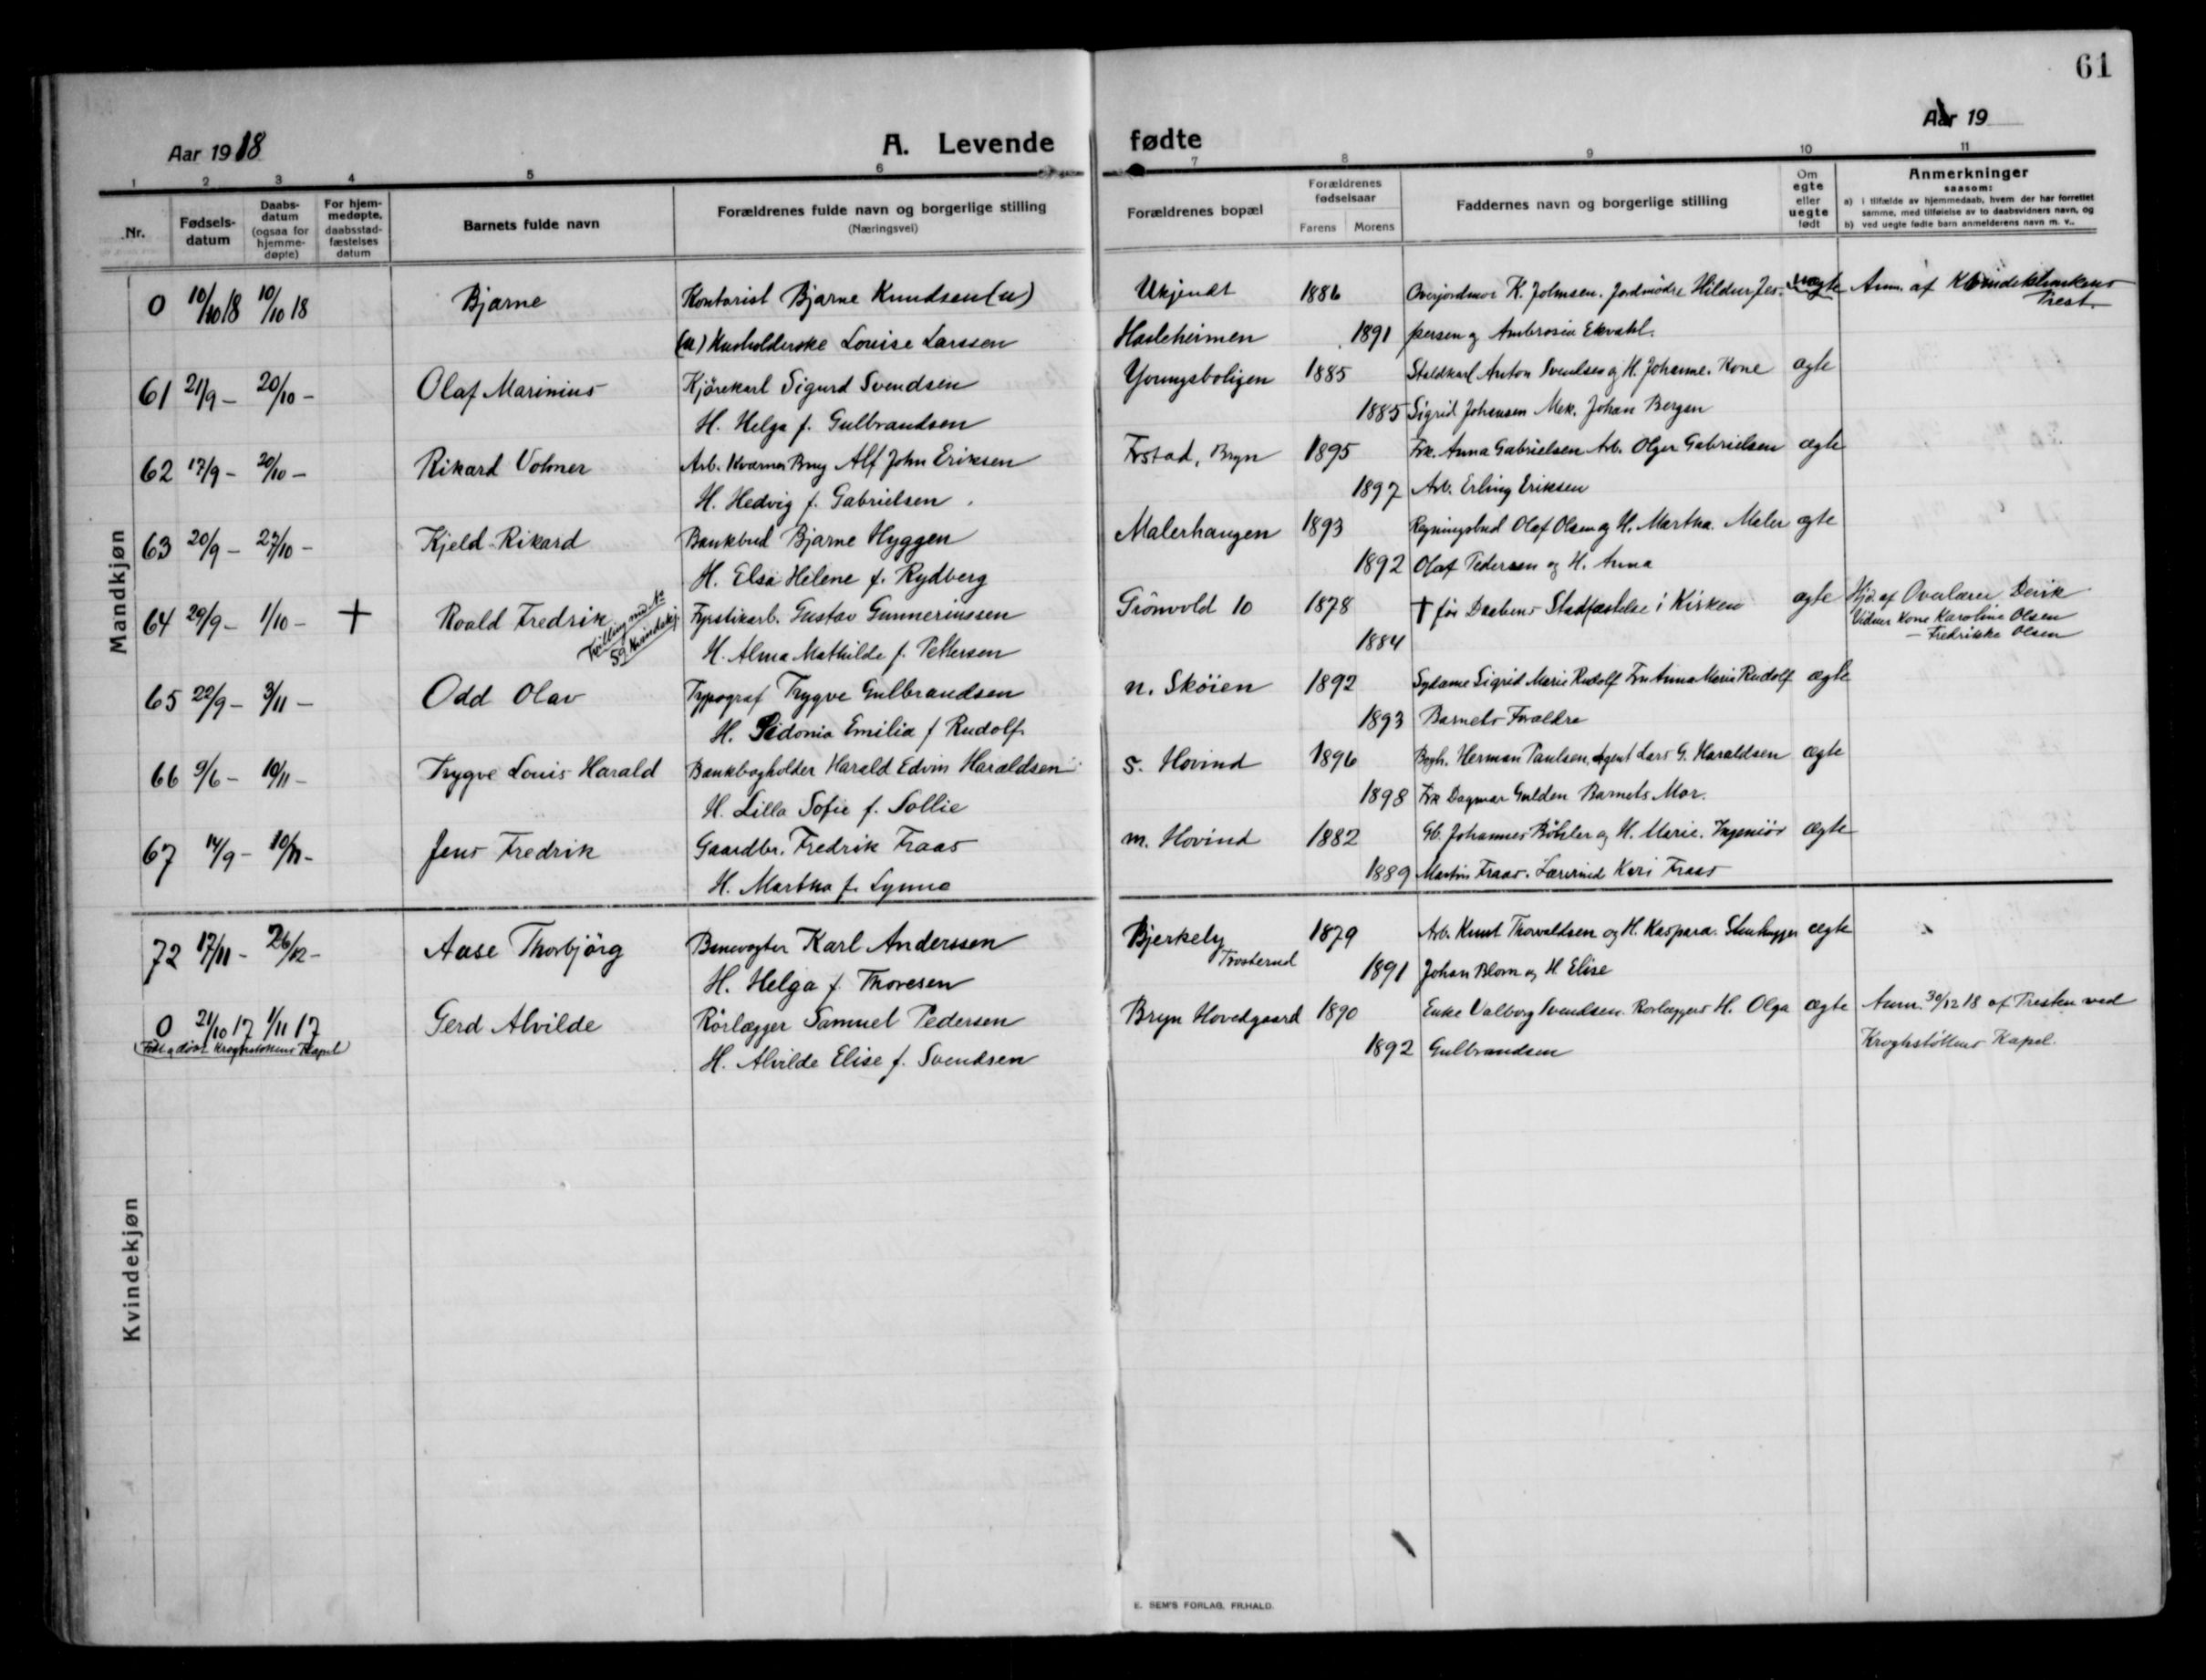 61
Aar 1918
A. Levende fødte
Aar 19
1 2 3 4 5 6 7 8 9 10 11
Nr.
Fødsels-
datum
Daabs-
datum
(ogsaa for
hjemme-
døpte)
For hjem-
medøpte,
daabsstad-
fæstelses
datum
Barnets fulde navn
Forældrenes fulde navn og borgerlige stilling
(Næringsvei)
Forældrenes bopæl
Forældrenes
fødselsaar
Farens Morens
Faddernes navn og borgerlige stilling
Om
egte
eller
uegte
født
Anmerkninger
saasom:
a) i tilfælde av hjemmedaab, hvem der har forrettet
samme, med tilføielse av to daabsvidners navn, og
b) ved uegte fødte barn anmelderens navn m. v..
Mandkjøn
0 10/10 18 10/10 18 Bjarne Kontorist Bjarne Knudsen (u) Ukjendt 1886 Overjordmor K. Johnsen. Jordmødre Hildur Jes- uægte Anm. af Kvindeklinikens
Prest.
(u) Husholderske Louise Larssen Hasleheimen 1891 persen og Ambrosia Ekvahl.
61 21/9 - 20/10 - Olaf Marinius Kjörekarl Sigurd Svendsen Youngsboligen 1885 Staldkarl Anton Svendsen og H. Johanne. Kone ægte
H. Helga f. Gulbrandsen 1885 Sigrid Johansen Mek. Johan Bergan
62 17/9 - 20/10 - Rikard Volmer Arb. Kværner Brug Alf John Eriksen Bryn 1895 Frk. Anna Gabrielsen Arb. Olger Gabrielsen ægte
H. Hedvig f. Gabrielsen 1897 Arb. Erling Eriksen
63 20/9 - 27/10 - Kjeld Rikard Bankbud Bjarne Hyggen Malerhaugen 1893 Regningsbud Olaf Olsen og H. Martha. Maler ægte
H. Elsa Helene f. Rydberg 1892 Olaf Pedersen og H. Anna
64 29/9 - 1/10 - † Roald Fredrik Tvilling med No
59 Kvindekj. Fyrstikarb. Gustav Gunneriussen Grönvold 10 1878 † før Daabens Stadfæstelse i Kirken ægte Hjd. af Overlærer Devik
Vidner Kone Karoline Olsen
— Fredrikke Olsen
H. Alma Mathilde f. Pettersen 1884
65 22/9 - 3/11 - Odd Olav Typograf Trygve Gulbrandsen n. Sköien 1892 Sydame Sigrid Marie Rudolf Fru Anna Marie Rudolf ægte
H. Sidonia Emilia f Rudolf 1893 Barnets Forældre
66 9/6 - 10/11 - Trygve Louis Harald Bankbogholder Harald Edvin Haraldsen s. Hovind 1896 Bogh. Herman Paulsen, Agent Lars G. Haraldsen ægte
H. Lilla Sofie f. Sollie 1898 Frk Dagmar Gulden Barnets Mor.
67 14/9 - 10/11 - Jens Fredrik Gaardbr. Fredrik Fraas m. Hovind 1882 Gb. Johannes Bøhler og H. Marie. Ingeniör ægte
H. Martha f. Lynne 1889 Martin Fraas. Lærerinde Kari Fraas
Kvindekjøn
72 17/11 - 26/12 - Aase Thorbjörg Banevogter Karl Anderssen Bjerkely
Trosterud 1879 Arb. Knut Thorvaldsen og H. Kaspara. Stenhugger ægte
H. Helga f. Thoresen 1891 Johan Blom og H Elise
0 21/10 17 1/11 17 Gerd Alvilde Rörlægger Samuel Pedersen Bryn Hovedgaard 1890 Enke Valborg Svendsen. Rörlæggers H. Olga ægte Anm. 30/12 18 af Presten ved
(Født og døbt Kroghstøttens Kapel)
H. Alvilde Elise f. Svendsen 1892 Gulbrandsen Kroghstøttens Kapel.
E. SEM'S FORLAG, FR.HALD.